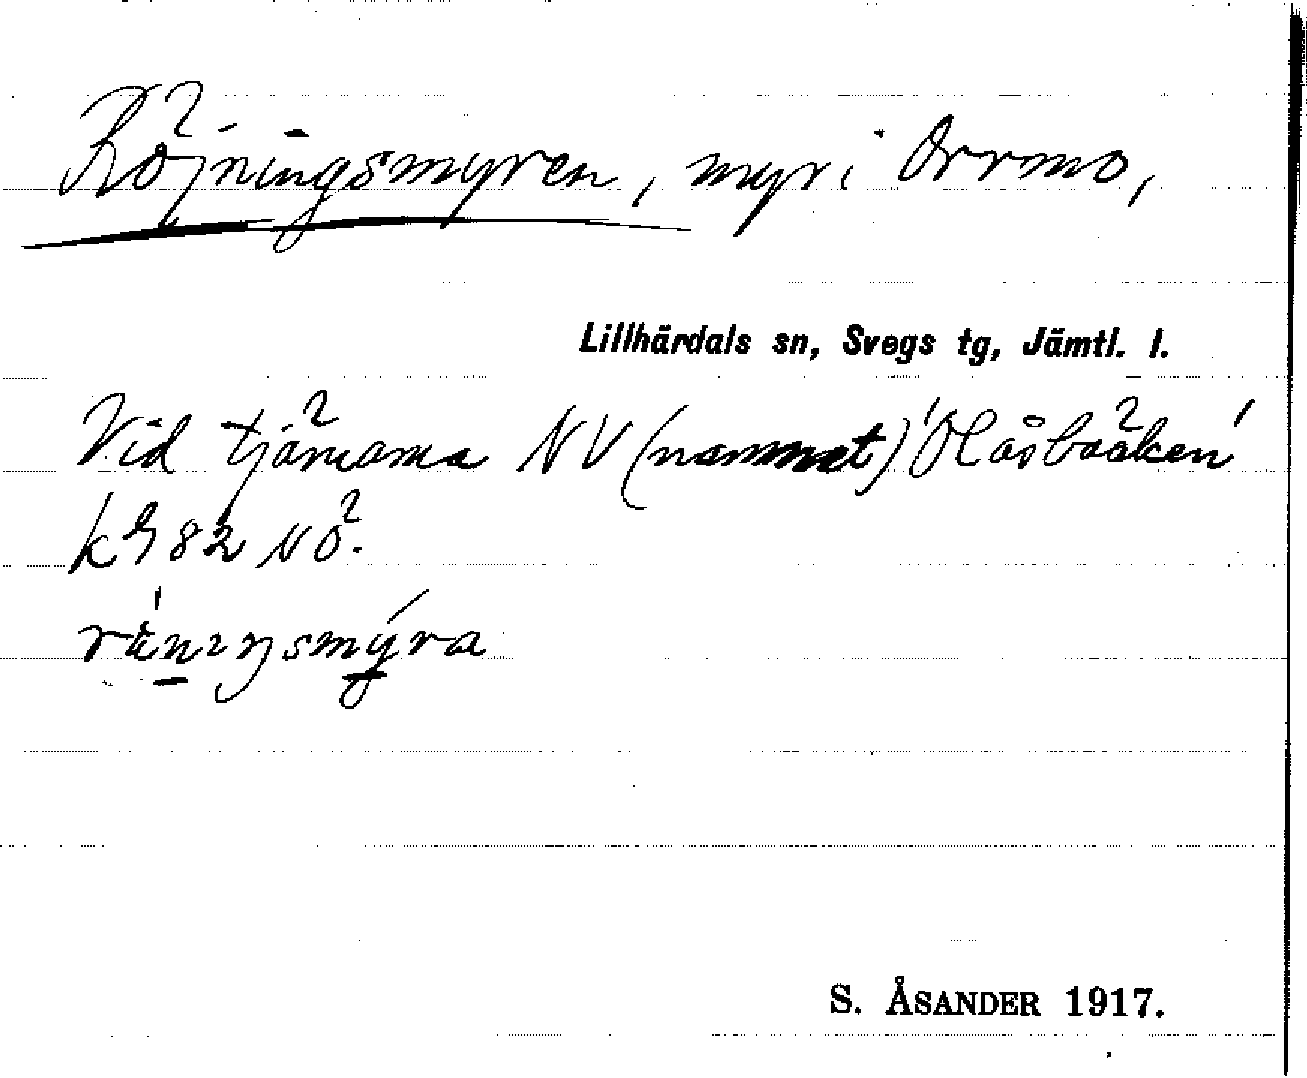 Röjningsmyren, myr i Orrmo,
Lillhärdals sn, Svegs tg, Jämtl. l.
Vid tjärnarna NV (namnet) 'Olåsbäcken'
k 982 NÖ.
S. ÅSANDER 1917.